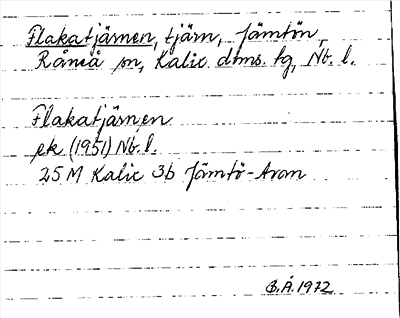 Flakatjärnen, tjärn, Jämtön,
Råneå sn, Kalix dtms. tg, Nb. l.
Flakatjärnen
ek (1951) Nb. l.
25 M Kalix 3b Jämtö-Avan
B.Å. 1972